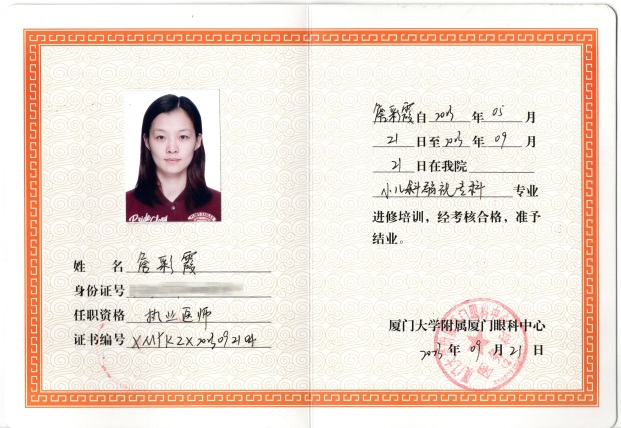 姓 名 詹彩霞
身份证号
任职资格 执业医师
证书编号 XMYKZX2023092104
詹彩霞自 2023 年 05 月
21 日至 2023 年 09 月
21 日在我院
小儿斜弱视专科 专业
进修培训，经考核合格，准予
结业。
厦门大学附属厦门眼科中心
2023 年 09 月 21 日